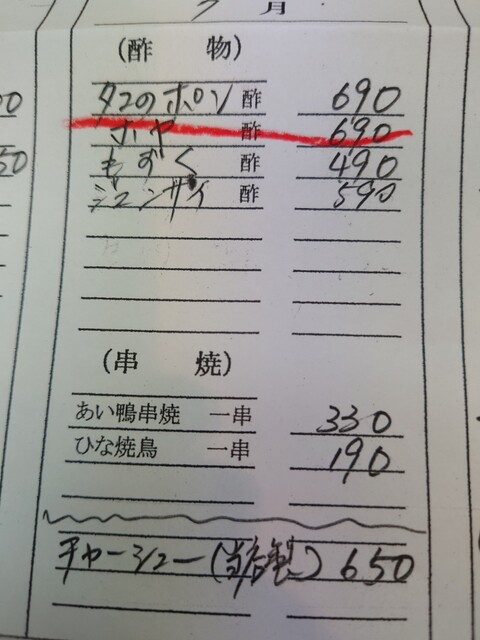 月
(酢 物)
タコのポン酢 690
ホヤ酢 690
もずく酢 490
ジュンサイ酢 590
(串 焼)
あい鴨串焼 一串 330
ひな焼鳥 一串 190
チャーシュー(当店製) 650
50